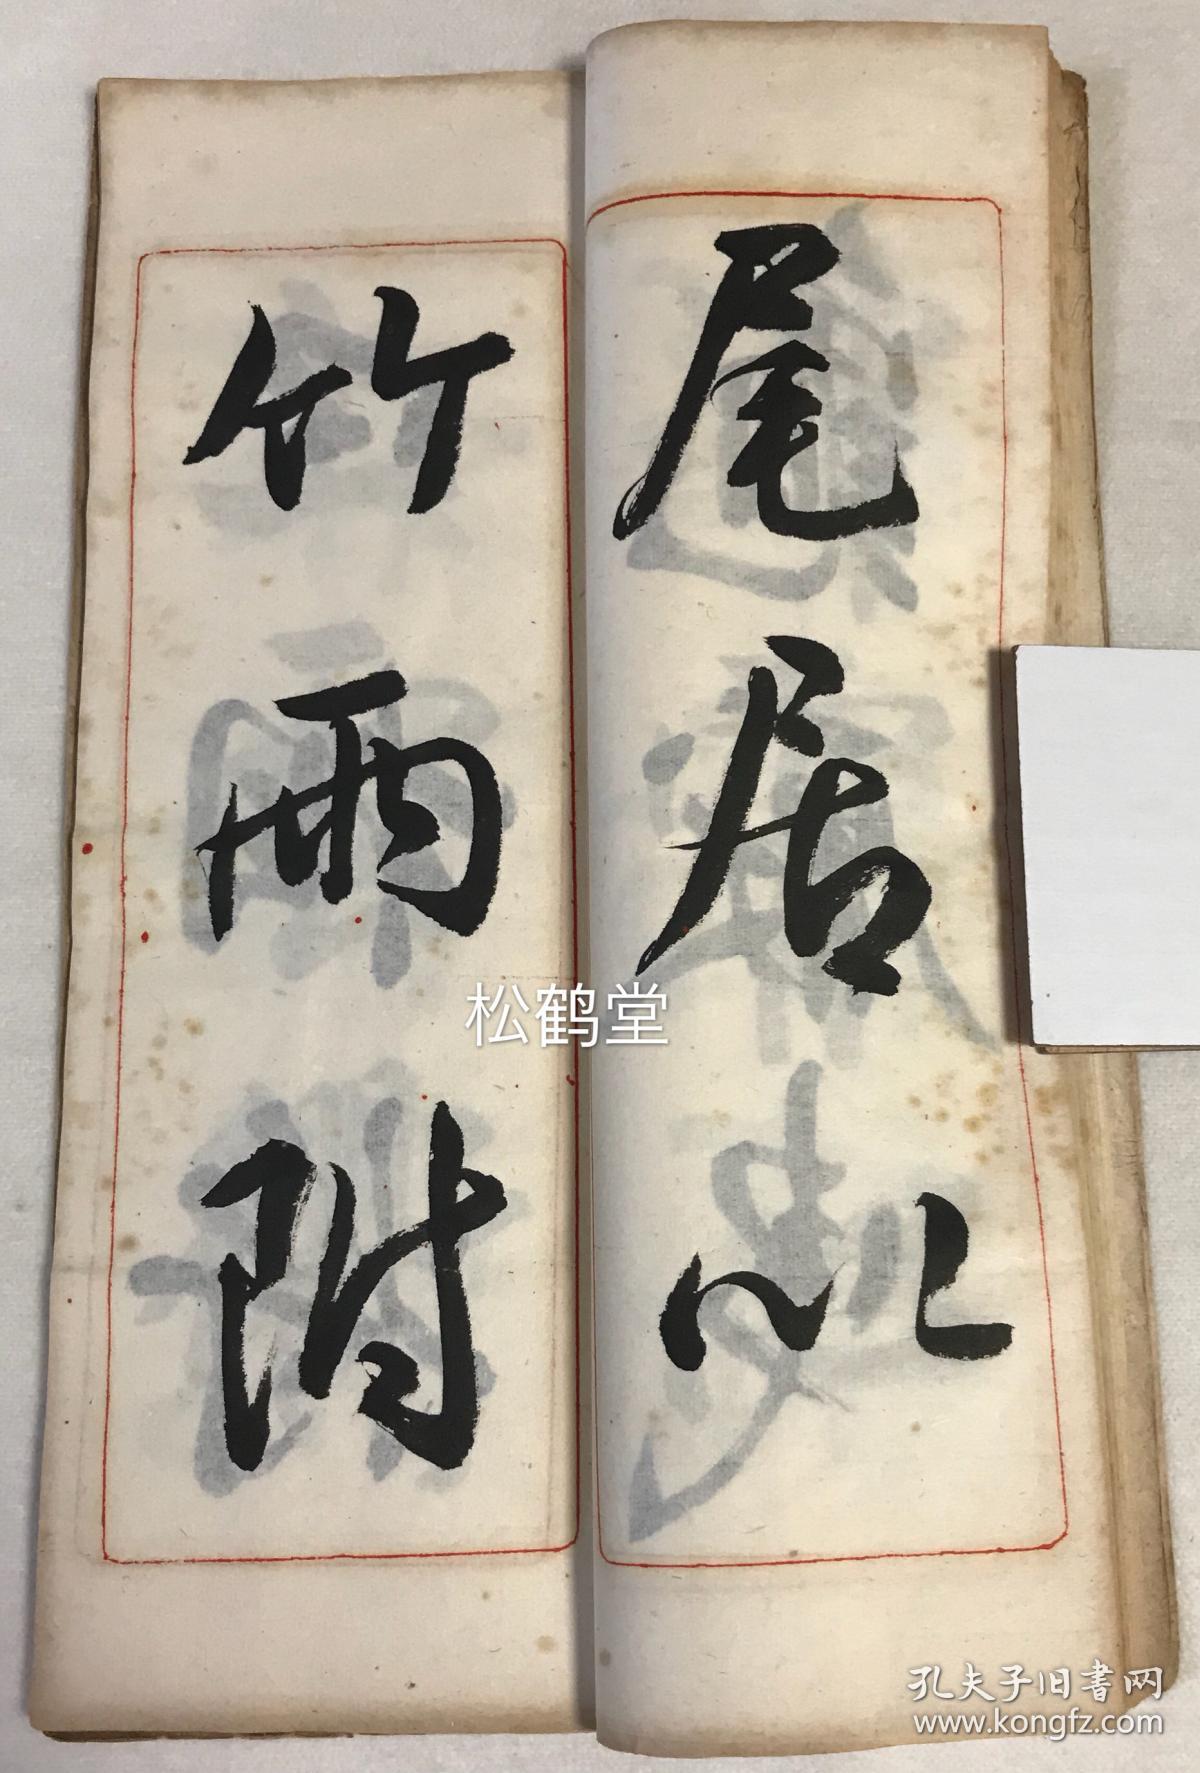 尾居以
竹雨附
松鹤堂
孔夫子旧书网
www.kongfz.com